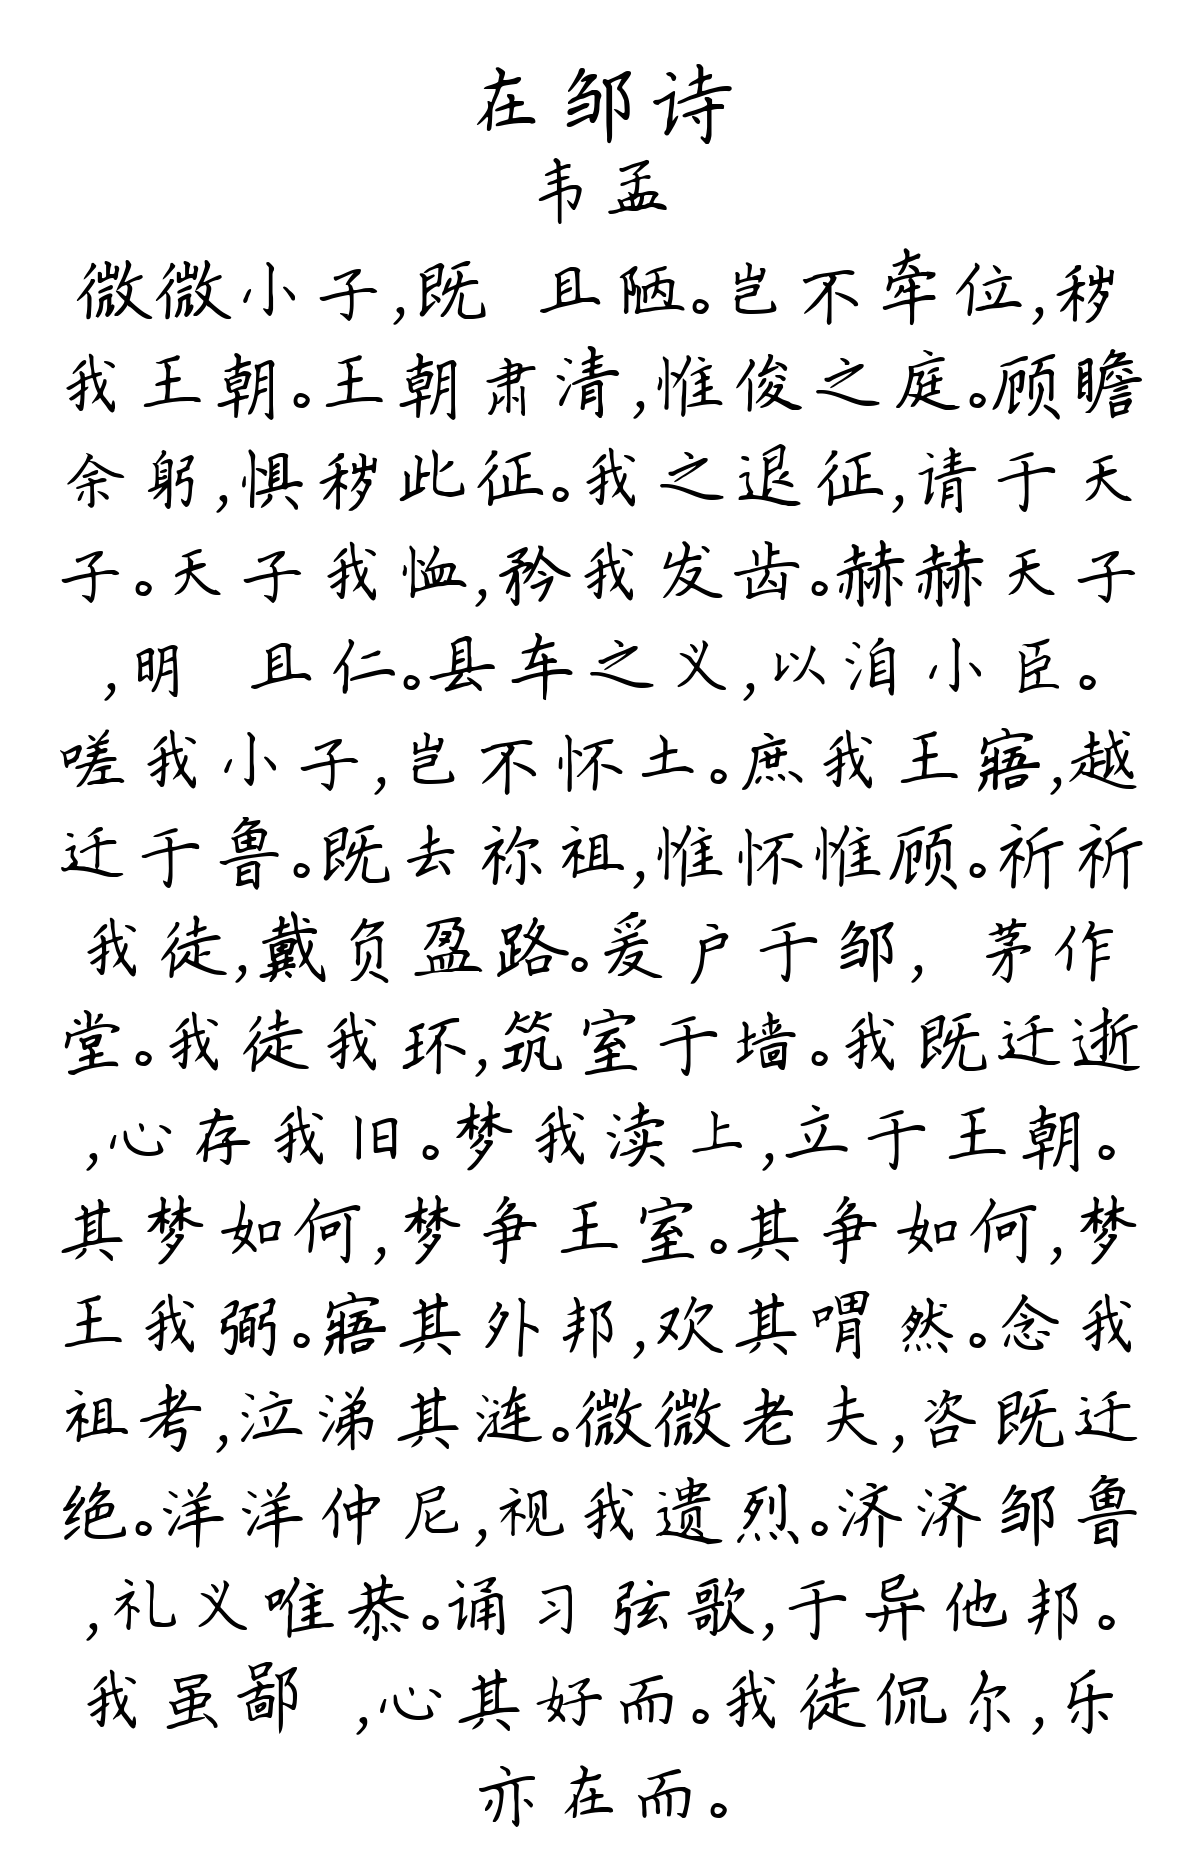 在邹诗
韦孟
微微小子,既 且陋。岂不牵位,秽
我王朝。王朝肃清,惟俊之庭。顾瞻
余躬,惧秽此征。我之退征,请于天
子。天子我恤,矜我发齿。赫赫天子
,明 且仁。县车之义,以洎小臣。
嗟我小子,岂不怀土。庶我王寤,越
迁于鲁。既去祢祖,惟怀惟顾。祈祈
我徒,戴负盈路。爰户于邹, 茅作
堂。我徒我环,筑室于墙。我既迁逝
,心存我旧。梦我渎上,立于王朝。
其梦如何,梦争王室。其争如何,梦
王我弼。寤其外邦,欢其喟然。念我
祖考,泣涕其涟。微微老夫,咨既迁
绝。洋洋仲尼,视我遗烈。济济邹鲁
,礼义唯恭。诵习弦歌,于异他邦。
我虽鄙 ,心其好而。我徒侃尔,乐
亦在而。